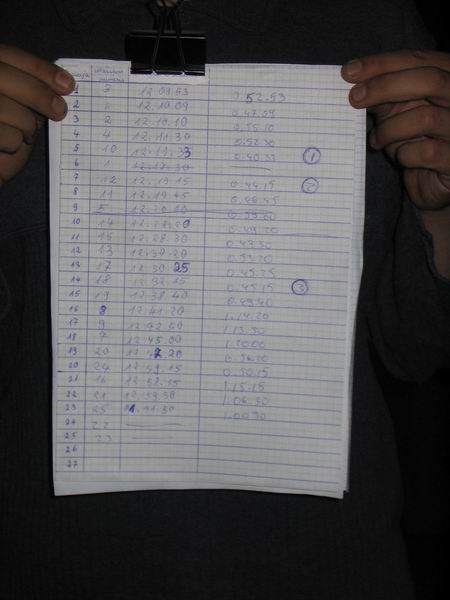 1 3 12.09.53 0.52.53
2 12.10.09 0.47.09
3 2 12.10.10 0.55.10
4 4 12.11.30 0.52.30
5 10 12.17.33 0.40.33 1
6 1 12.17.30
7 12 12.19.15 0.44.15 2
8 11 12.19.45 0.48.45
9 5
10 14 0.49.20
11 15 12.28.30 0.47.30
12 13 12.30.20 0.53.20
13 17 12.30 25 0.45.25
14 18 12.32.15 0.45.15 3
15 19 12.38.40 0.49.40
16 8 12.41.20 1.14.20
17 9 12.42.40
18 7 12.45.00 1.20.00
19 20
20 24 12.49.15 0.50.15
21 16 12.52.15 1.15.15
22 21 12.59.30 1.06.30
23 25 1.11.30 1.00.30
24 22
25 23
26
27